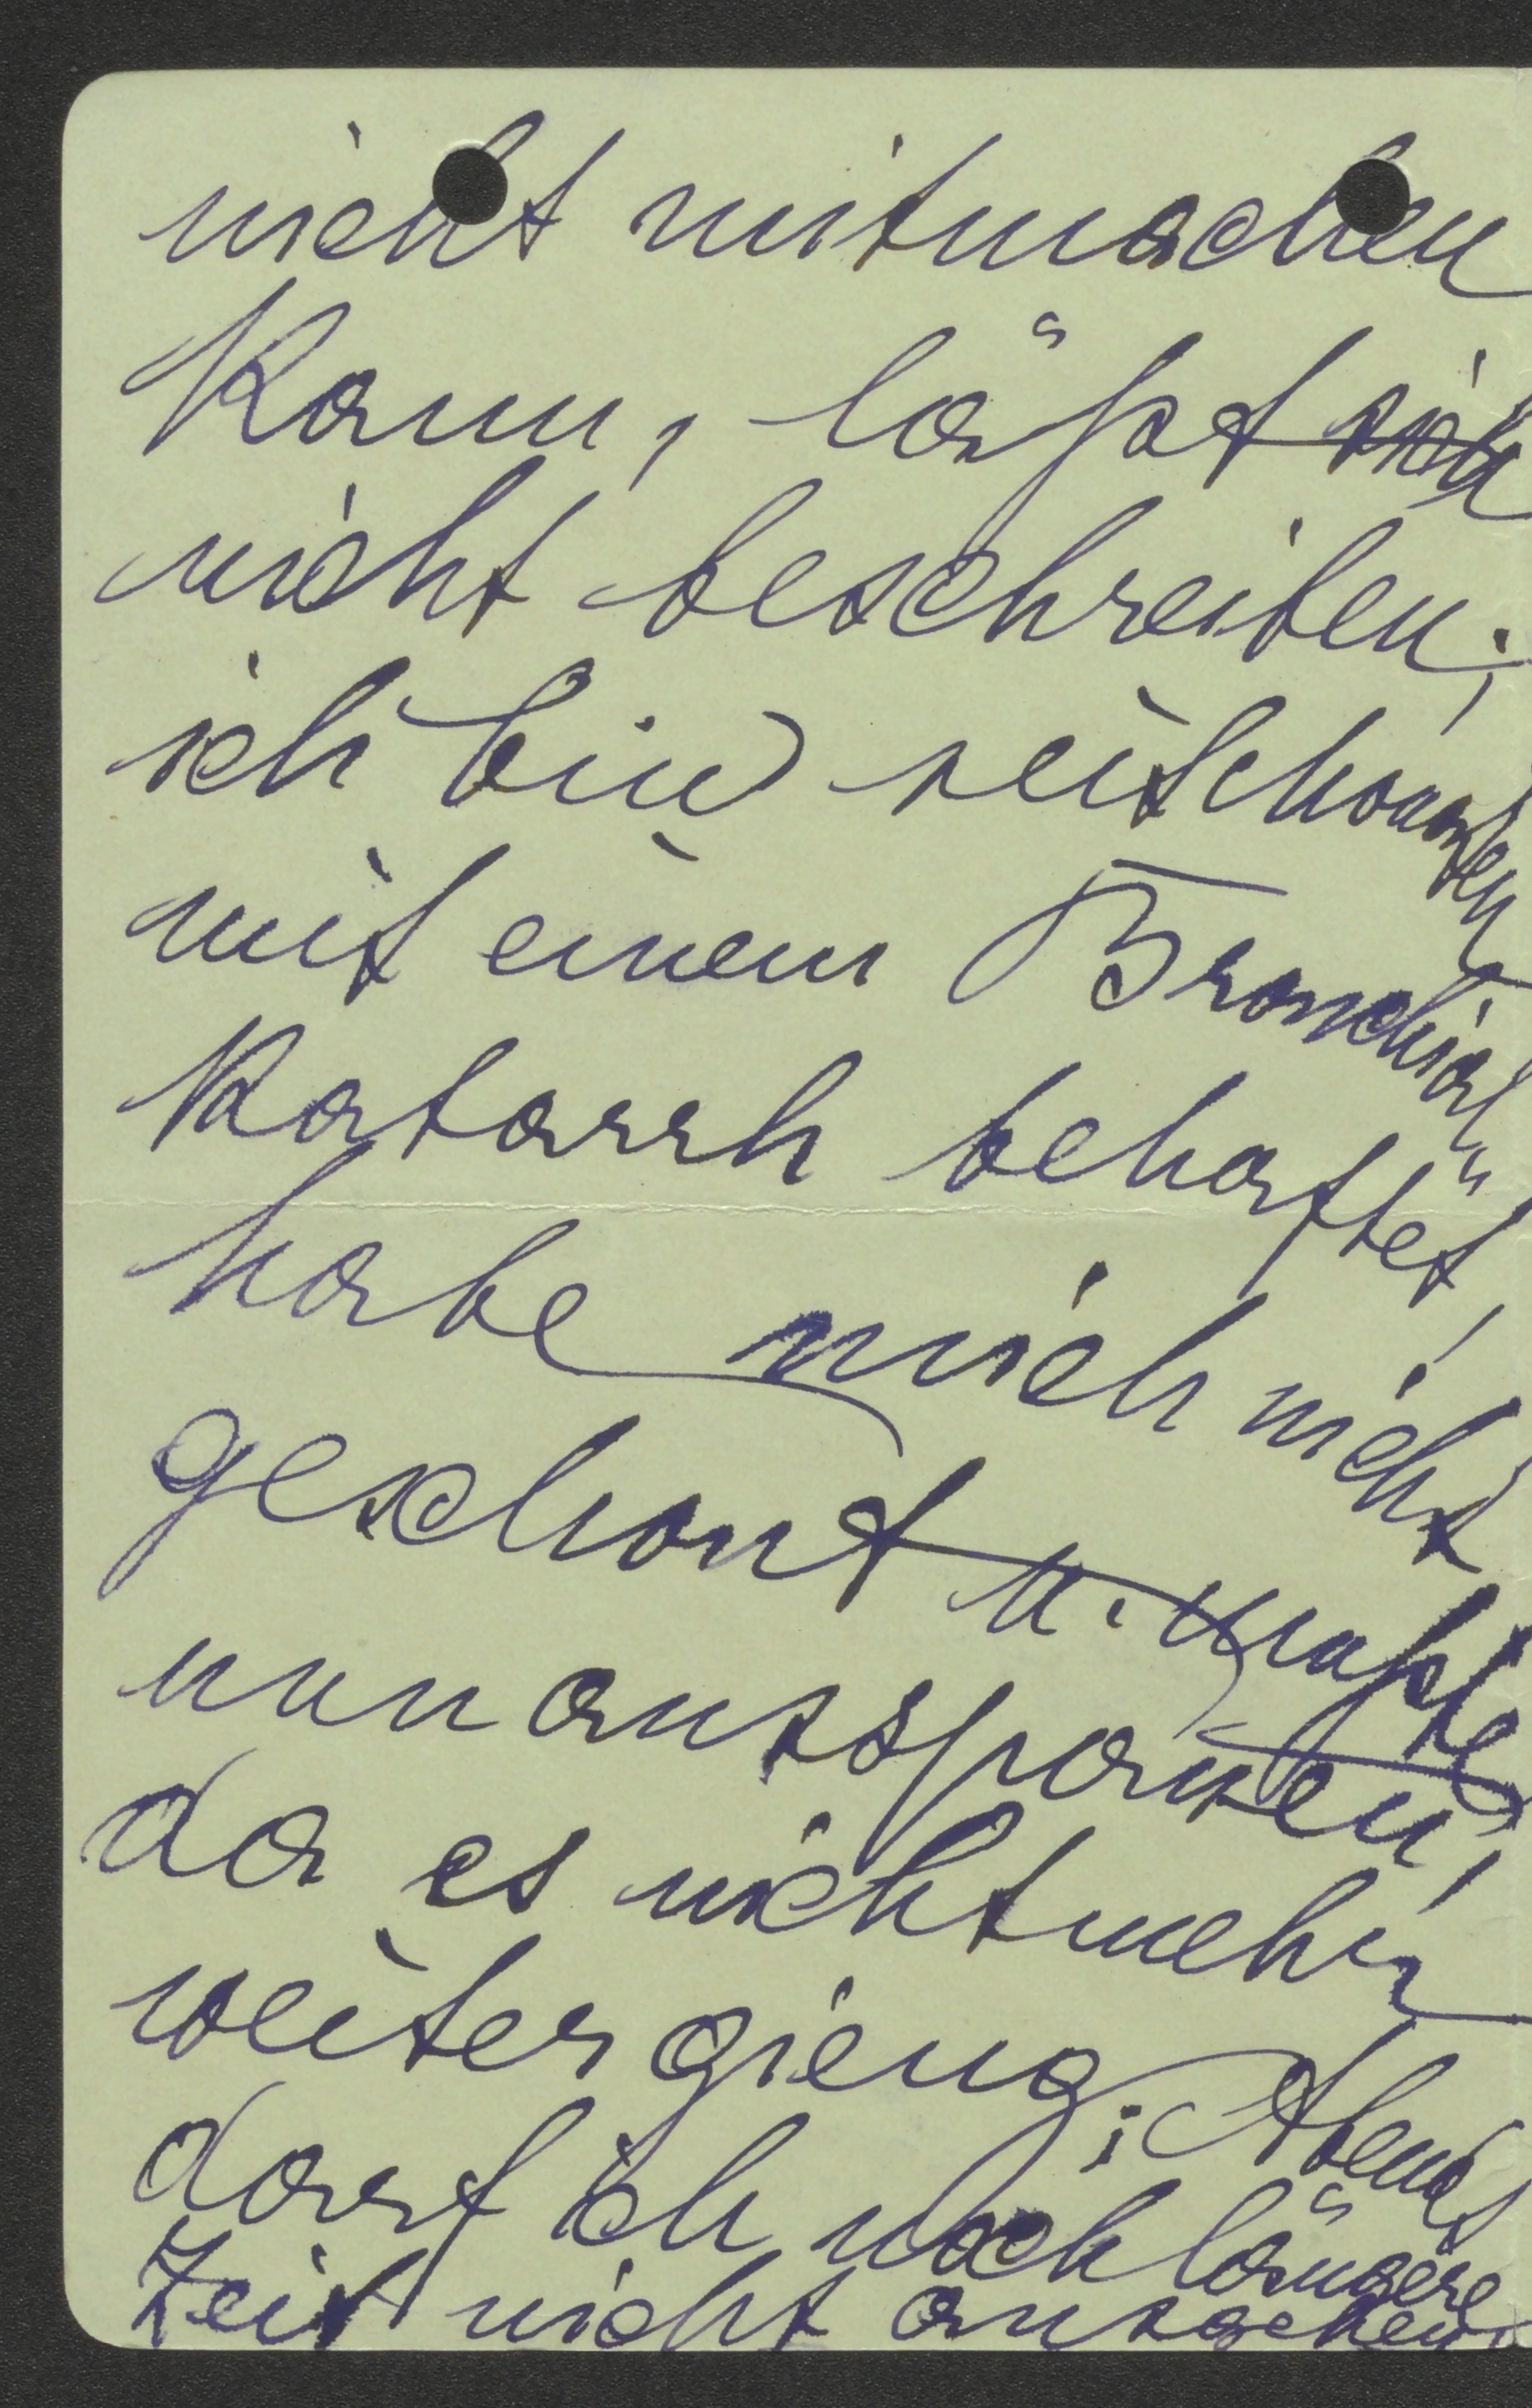 nicht mitmachen
kann, läßt sich
nicht beschreiben;
ich bin seit Wochen
mit einem Bronchial
Katarrh behaftet,
habe mich nicht
geschont u. mußte
nun ausspannen,
da es nicht mehr
weiter gieng; Abends
darf ich noch längere
Zeit nicht ausgehen.